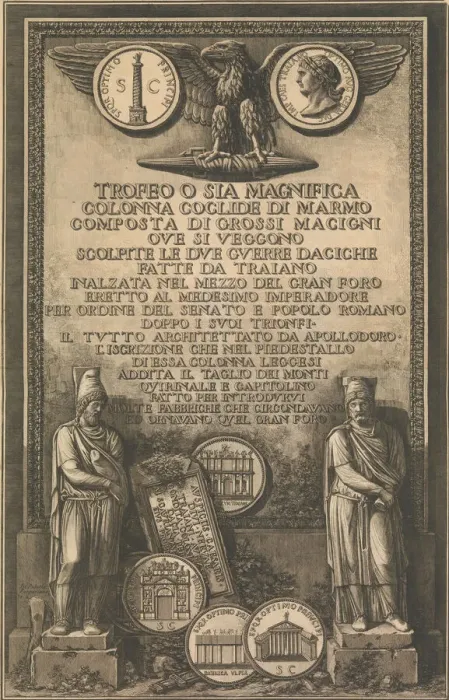 SPQR OPTIMO PRINCIPI
S C
TROFEO O SIA MAGNIFICA
COLONNA COCLIDE DI MARMO
COMPOSTA DI GROSSI MACIGNI
OVE SI VEGGONO
SCOLPITE LE DVE GVERRE DACICHE
FATTE DA TRAIANO
INALZATA NEL MEZZO DEL GRAN FORO
ERETTO AL MEDESIMO IMPERADORE
PER ORDINE DEL SENATO E POPOLO ROMANO
DOPPO I SVOI TRIONFI·
IL TVTTO ARCHITETTATO DA APOLLODORO·
L'ISCRIZIONE CHE NEL PIEDESTALLO
DI ESSA COLONNA LEGGESI
ADDITA IL TAGLIO DEI MONTI
QVIRINALE E CAPITOLINO
FATTO PER INTRODVRVI
MOLTE FABBRICHE CHE CIRCONDAVANO
ED ORNAVANO QVEL GRAN FORO
S C
SPQR OPTIMO
BASILICA VLPIA
SPQR OPTIMO PRINCIPI
S C